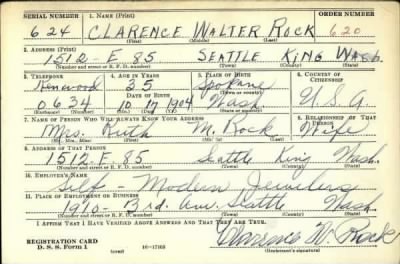 SERIAL NUMBER 1. NAME (Print) ORDER NUMBER
624 CLARENCE WALTER ROCK 620
(First) (Middle) (Last)
2. ADDRESS (Print)
1512-E. 85 SEATTLE KING WASH.
(Number and street or R. F. D. number) (Town) (County) (State)
3. TELEPHONE 4. AGE IN YEARS 5. PLACE OF BIRTH 6. COUNTRY OF CITIZENSHIP
Kenwood 35 Spokane
DATE OF BIRTH (Town or county)
0634 10 17 1904 Wash. U.S.A.
(Mo.) (Day) (Yr.) (State or country)
7. NAME OF PERSON WHO WILL ALWAYS KNOW YOUR ADDRESS 8. RELATIONSHIP OF THAT PERSON
Mrs. Ruth M. Rock Wife
(Mr., Mrs., Miss) (First) (Middle) (Last)
9. ADDRESS OF THAT PERSON
1512-E. 85 Seattle King Wash.
(Number and street or R. F. D. number) (Town) (County) (State)
10. EMPLOYER'S NAME
Self - Modern Jewelers
11. PLACE OF EMPLOYMENT OR BUSINESS
1910-3rd. Ave. Seattle Wash.
(Number and street or R. F. D. number) (Town) (County) (State)
I AFFIRM THAT I HAVE VERIFIED ABOVE ANSWERS AND THAT THEY ARE TRUE.
REGISTRATION CARD Clarence W. Rock
D. S. S. Form 1 (over) 16-17105 (Registrant's signature)